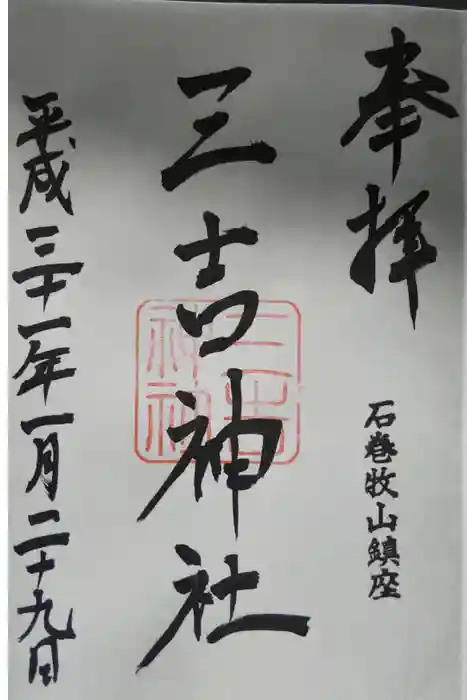 奉拝
石巻牧山鎮座
三吉神社
三吉神社
平成三十一年一月二十九日